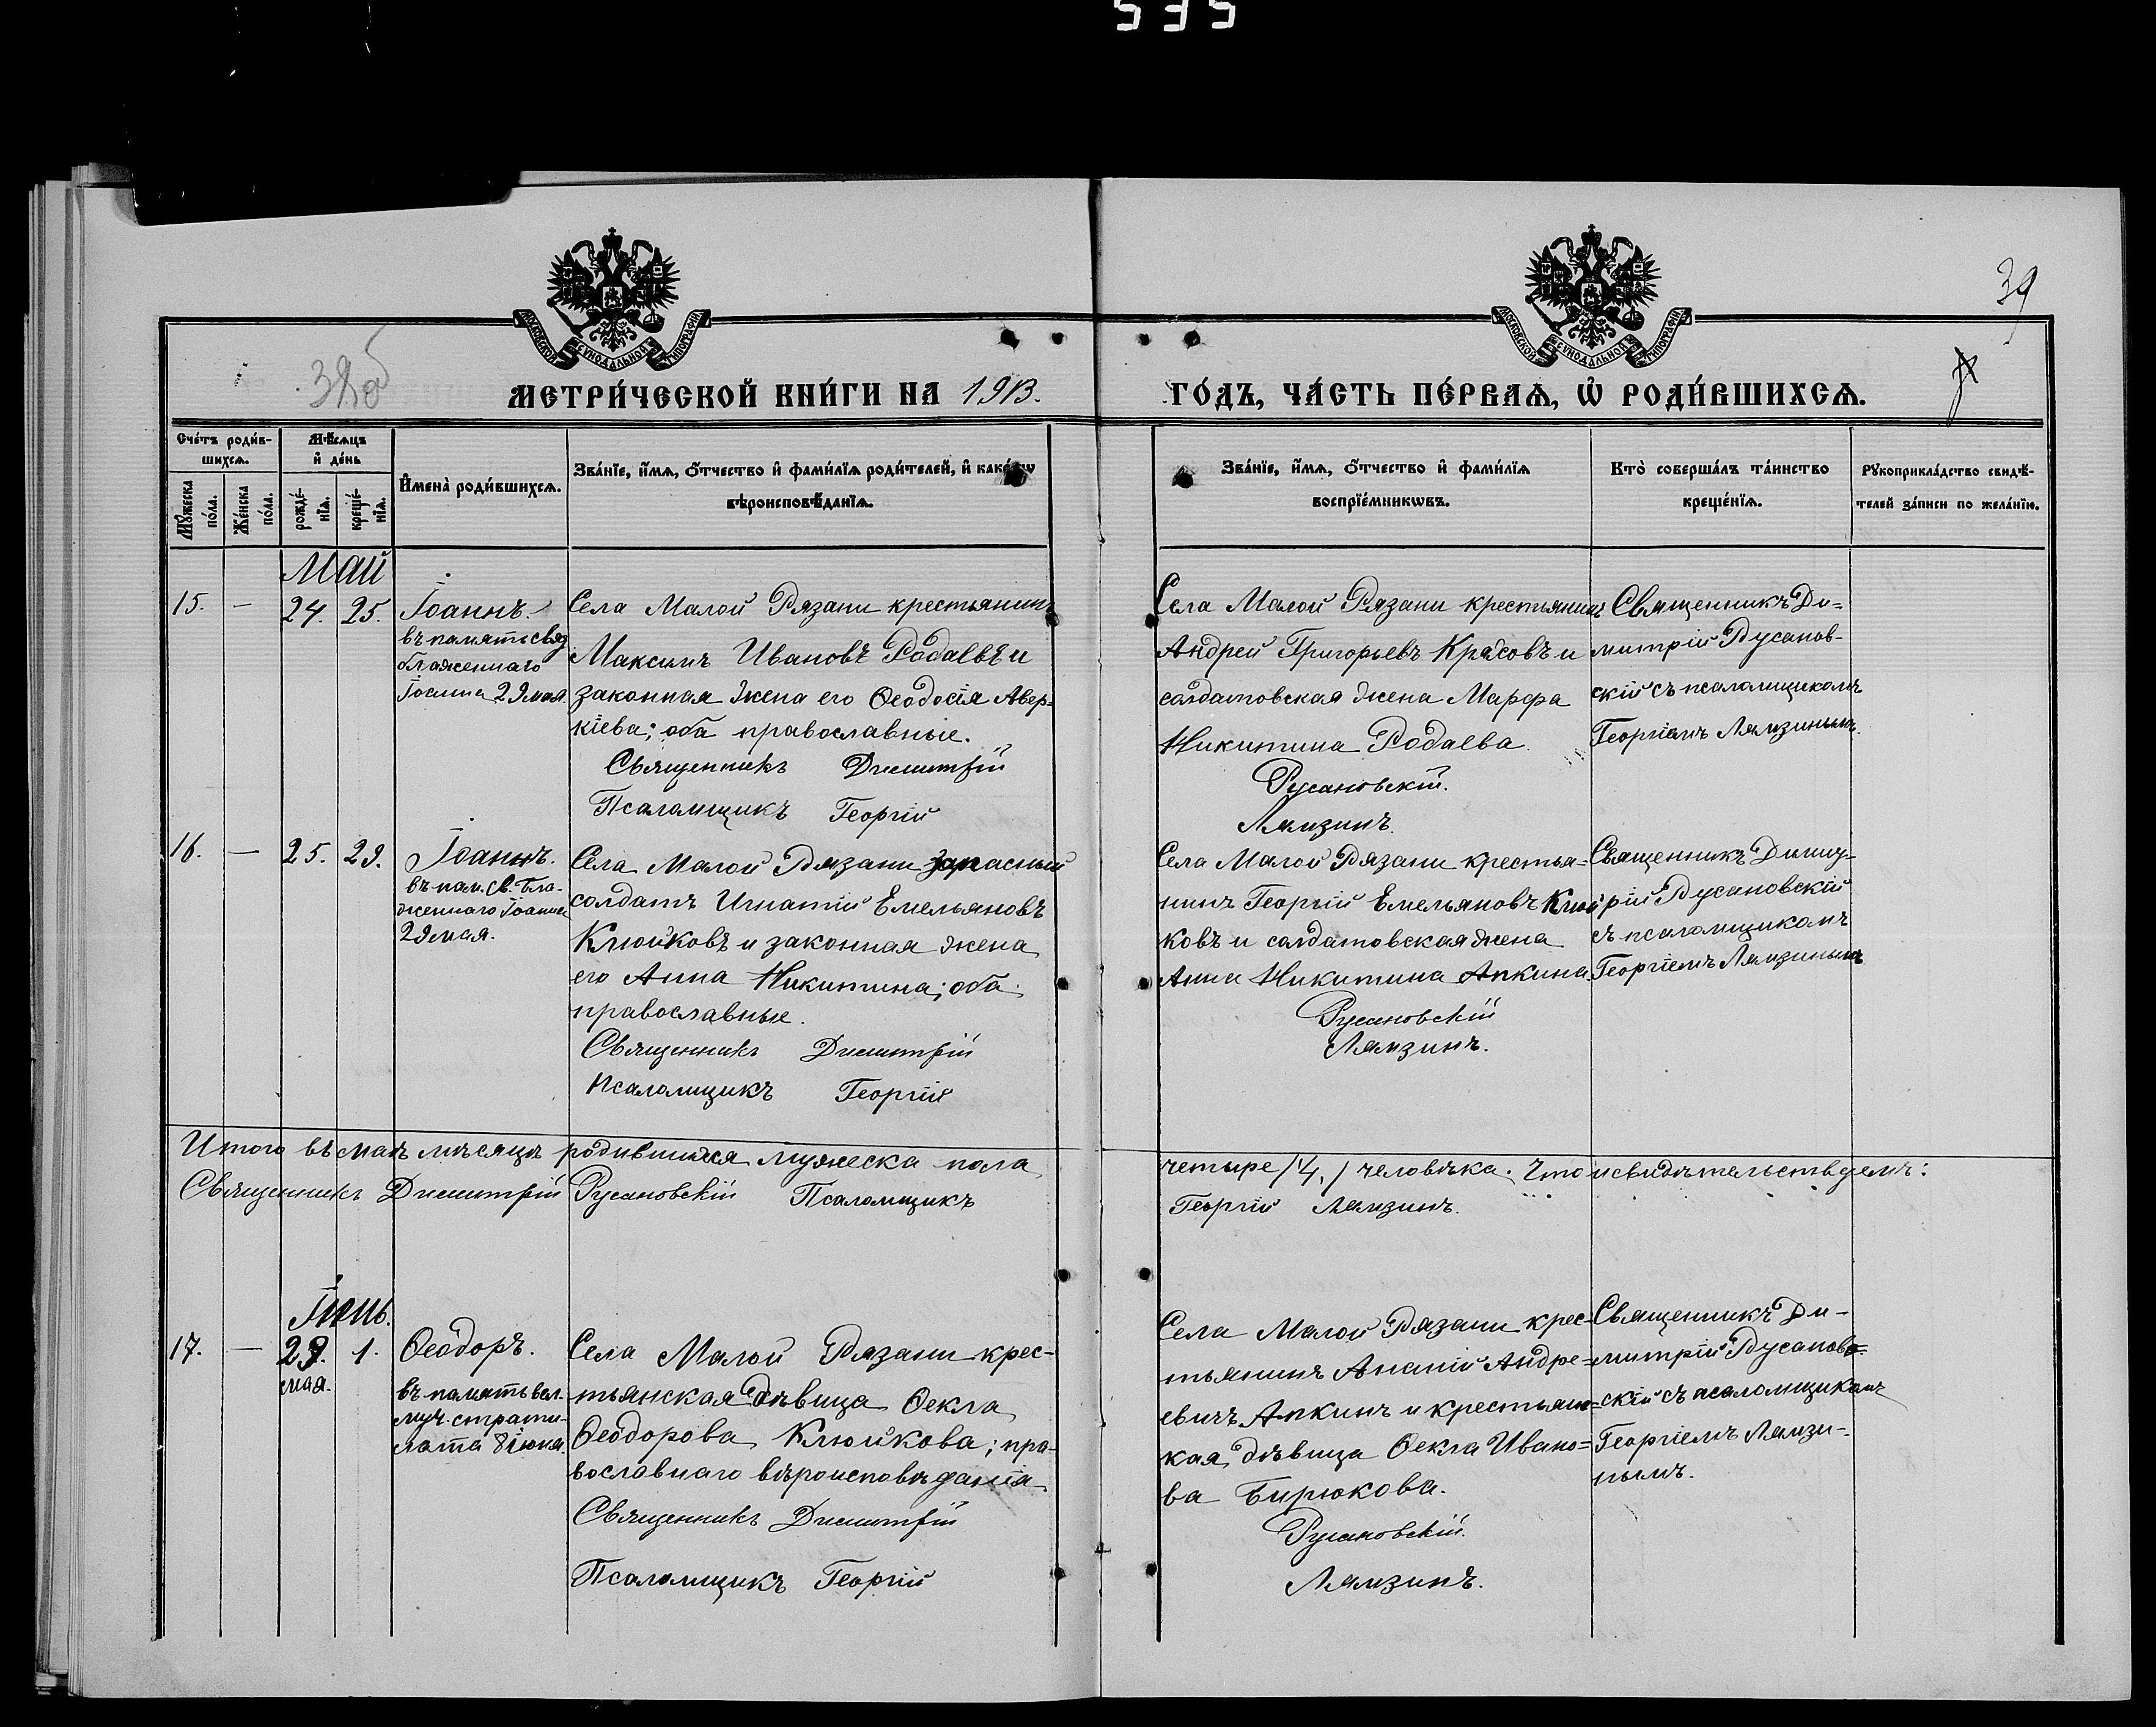 535
39
38об
МОСКОВСКОЙ СУНОДАЛЬНОЙ ТИПОГРАФІИ
МОСКОВСКОЙ СУНОДАЛЬНОЙ ТИПОГРАФІИ
МЕТРИ́ЧЕСКОЙ КНИ́ГИ НА 1913.
ГО́ДЪ, ЧА́СТЬ ПЕ́РВАѦ, Ѡ҆ РОДИ́ВШИХСѦ.
Сче́тъ роди́в-
шихсѧ.
Мѣ́сѧцъ
и҆ де́нь
И҆мена̀ роди́вшихсѧ.
Зва́нїе, и҆́мѧ, ѻ҆́тчество и҆ фами́лїѧ роди́телей, и҆ како́гѡ
вѣроисповѣ́данїѧ.
Мꙋ́жеска
по́ла.
Же́нска
по́ла.
рожде́-
нїѧ.
креще́-
нїѧ.
Зва́нїе, и҆́мѧ, ѻ҆́тчество и҆ фами́лїѧ
воспрїе́мникѡвъ.
Кто̀ соверша́лъ та́инство
креще́нїѧ.
Рꙋкоприкла́дство свидѣ́-
телей за́писи по жела́нїю.
Май
15. — 24. 25.
Іоаннъ.
въ память свят
блаженнаго
Іоанна 29 мая.
Села Малой Рязани крестьянинъ
Максимъ Ивановъ Родаевъ и
законная жена его Ѳеодосія Авер-
кіева; оба православные.
Священникъ Димитрій
Псаломщикъ Георгій
Села Малой Рязани крестьянинъ
Андрей Григорьевъ Красовъ и
солдатовская жена Марфа
Никитина Родаева.
Русановскій.
Лямзинъ.
Священникъ Ди-
митрій Русанов-
скій съ псаломщикомъ
Георгіемъ Лямзинымъ.
16. — 25. 29.
Іоаннъ.
въ пам. св. Бла-
женнаго Іоанна
29 мая.
Села Малой Рязани запасный
солдатъ Игнатій Емельяновъ
Клюйковъ и законная жена
его Анна Никитина; оба
православные.
Священникъ Димитрій
Псаломщикъ Георгій
Села Малой Рязани крестья-
нинъ Георгій Емельяновъ Клюй
ковъ и солдатовская жена
Анна Никитина Апкина.
Русановскій
Лямзинъ.
Священникъ Димит-
рій Русановскій
съ псаломщикомъ
Георгіемъ Лямзинымъ
Итого въ маѣ мѣсяцѣ родившихся мужеска пола
четыре /4./ человѣка. Что и свидѣтельствуемъ:
Священникъ Димитрій Русановскій Псаломщикъ
Георгій Лямзинъ.
Іюнь.
17. — 29. 1.
мая.
Ѳеодоръ.
въ память вел.
муч. страти-
лата 8 іюня.
Села Малой Рязани крес-
тьянская дѣвица Ѳекла
Ѳеодорова Клюйкова; пра-
вославнаго вѣроисповѣданія
Священникъ Димитрій
Псаломщикъ Георгій
Села Малой Рязани крес-
тьянинъ Ананій Андре-
евичъ Апкинъ и крестьянс-
кая дѣвица Ѳекла Ивано-
ва Бирюкова.
Русановскій.
Лямзинъ.
Священникъ Ди-
митрій Русанов-
скій съ псаломщикомъ
Георгіемъ Лямзи-
нымъ.